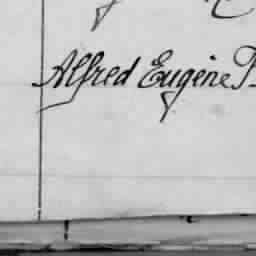 Alfred Eugène